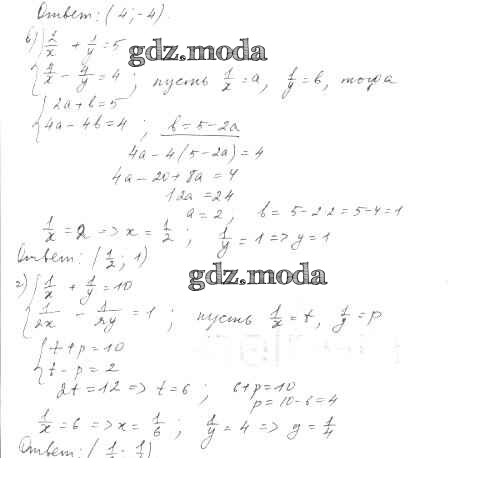 Ответ: (4; -4).
в) { 2/x + 1/y = 5
gdz.moda
{ 4/x - 4/y = 4 ; пусть 1/x = a, 1/y = b, тогда
{ 2a + b = 5
{ 4a - 4b = 4 ; b = 5 - 2a
4a - 4(5 - 2a) = 4
4a - 20 + 8a = 4
12a = 24
a = 2, b = 5 - 2·2 = 5 - 4 = 1
1/x = 2 => x = 1/2 ; 1/y = 1 => y = 1
Ответ: (1/2; 1)
gdz.moda
г) { 1/x + 1/y = 10
{ 1/2x - 1/2y = 1 ; пусть 1/x = t, 1/y = p
{ t + p = 10
{ t - p = 2
2t = 12 => t = 6 ; 6 + p = 10
p = 10 - 6 = 4
1/x = 6 => x = 1/6 ; 1/y = 4 => y = 1/4
Ответ: (